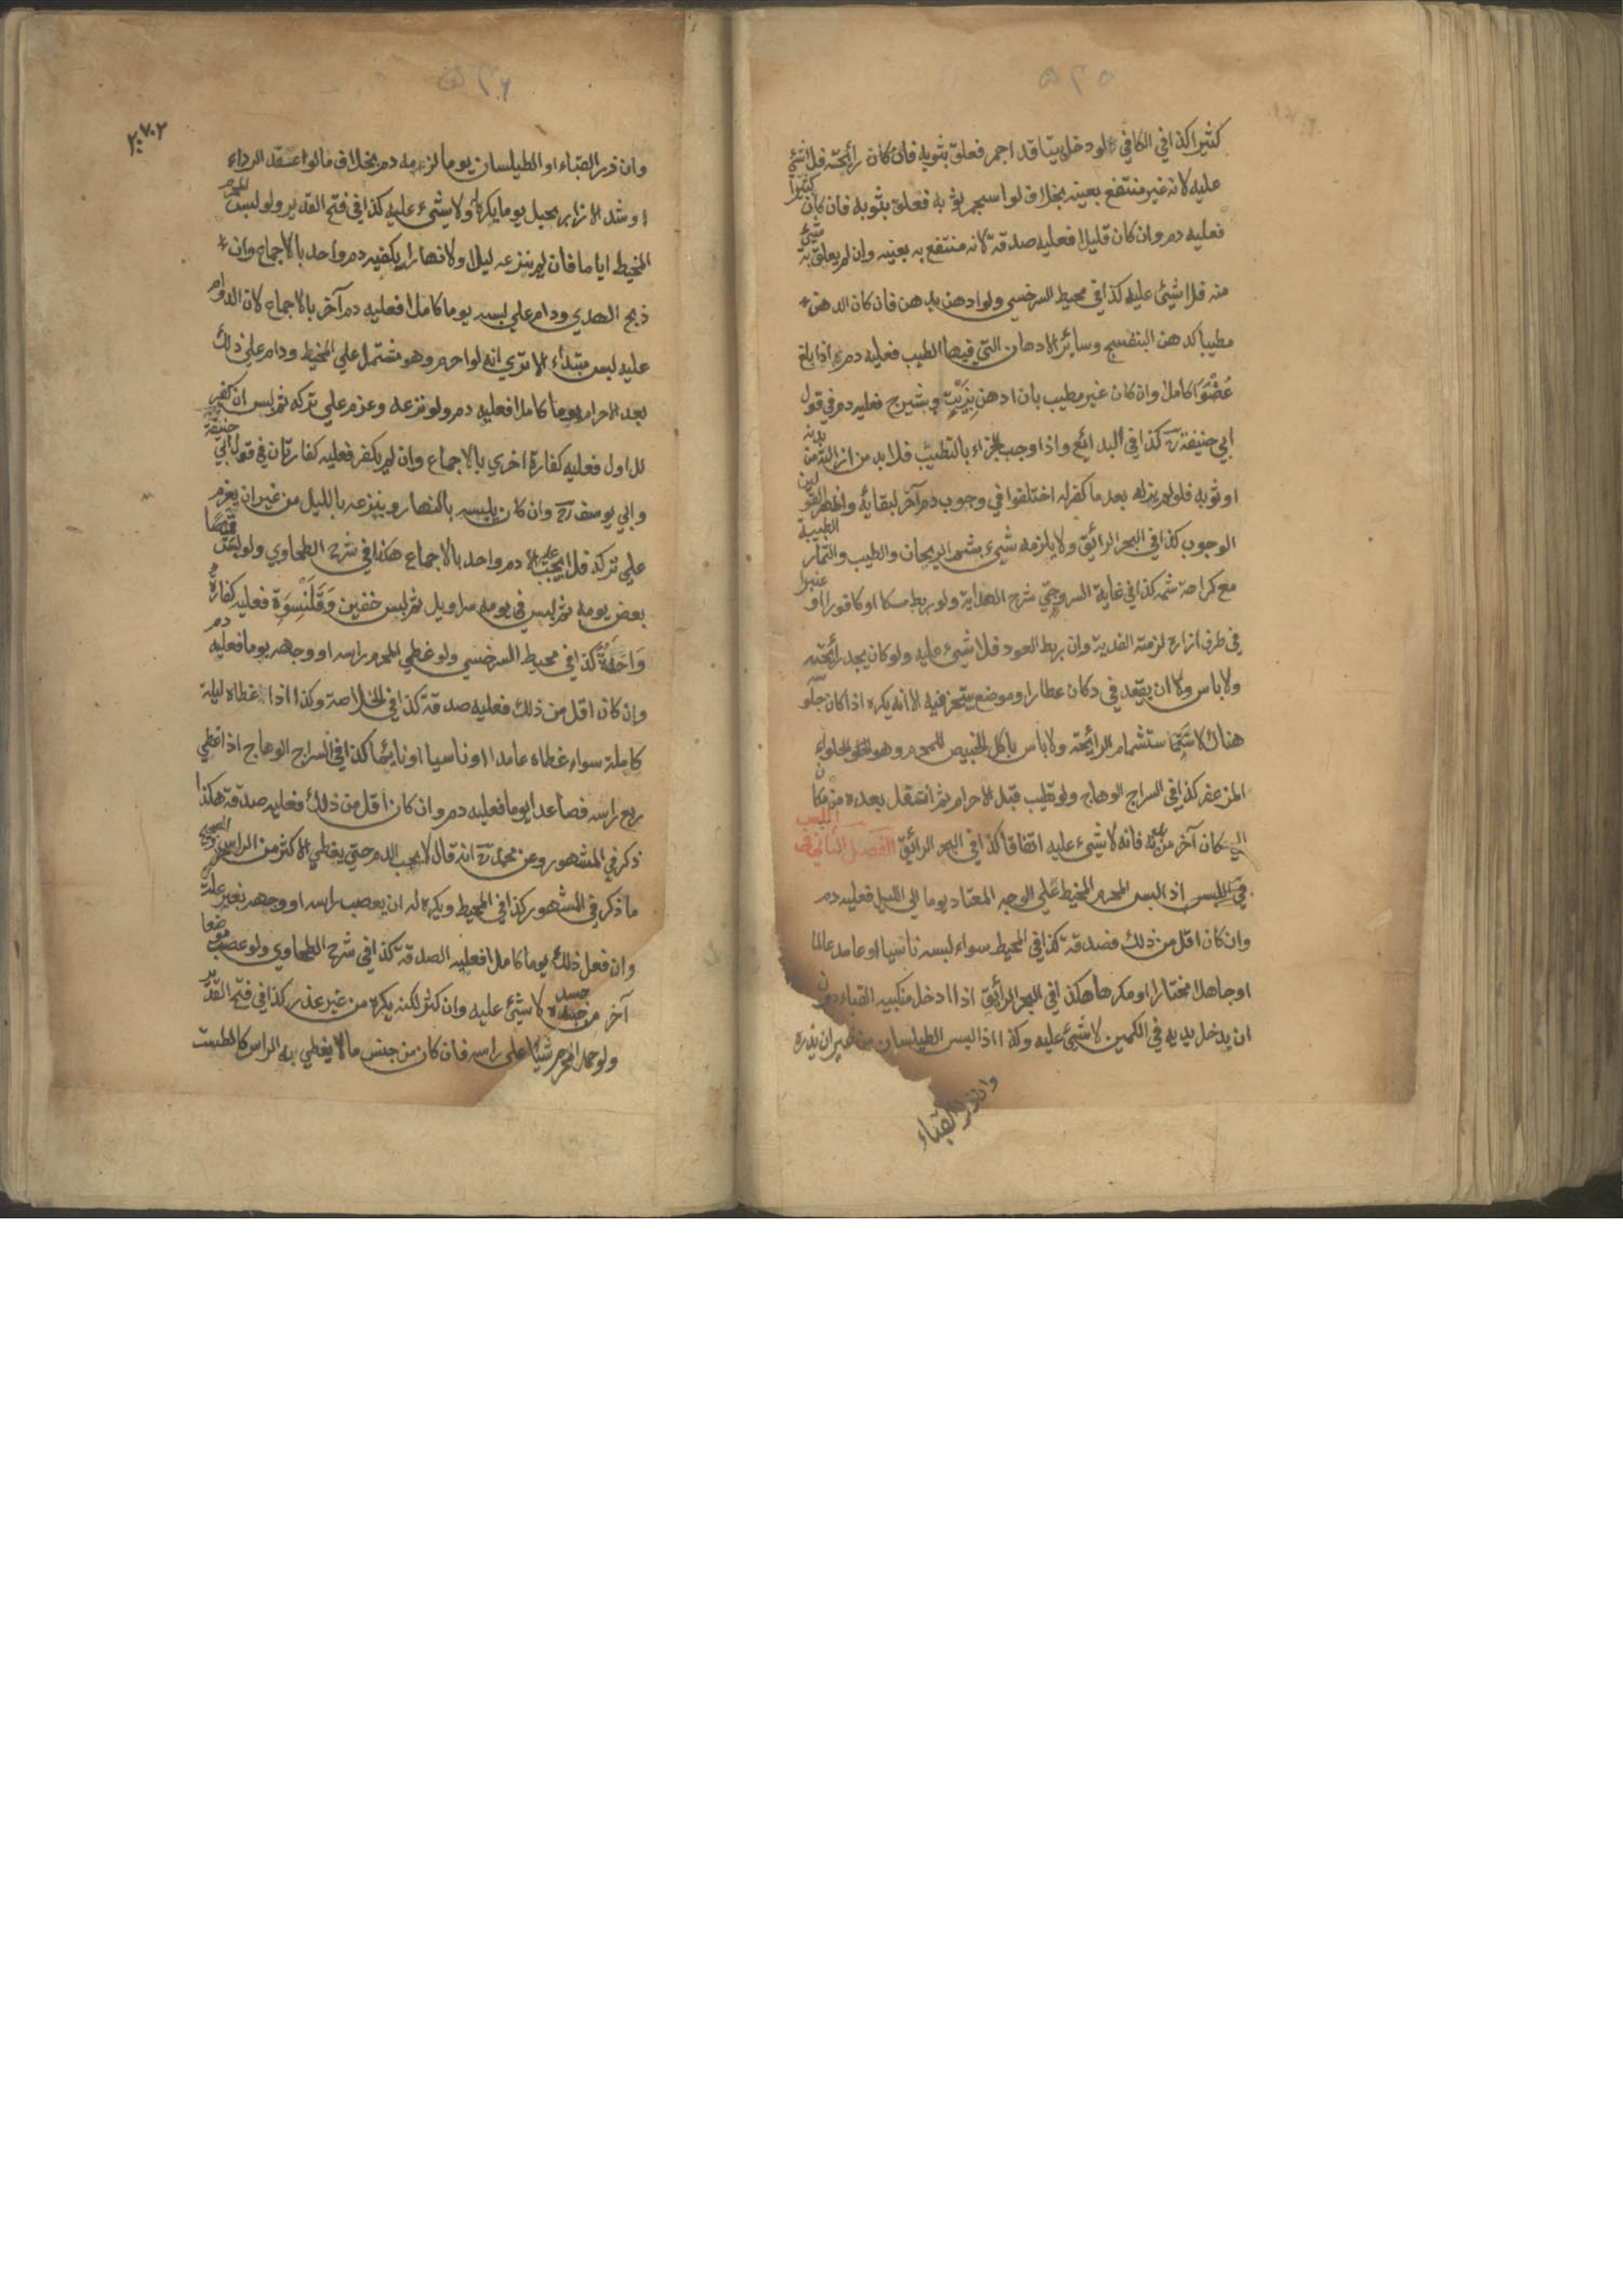 ۵۳۵
كثيرا كذا في الكافي ولو دخل بيتا قد اجمر فعلق بثوبه فان كان رائحته فلا شئ
عليه لانه غير منتفع بعينه بخلاف لو استجمر ثوبه فعلق بثوبه فان كان كثيرا
فعليه دم وان كان قليلا فعليه صدقة لانه منتفع به بعينه وان لم يعلق به شئ
منه فلا شئ عليه كذا في محيط السرخسي ولو ادهن بدهن فان كان الدهن
مطيبا كدهن البنفسج وسائر الادهان التي فيها الطيب فعليه دم اذا بلغ
عُضْوًا كاملا وان كان غير مطيب بان ادهن بِزَيْتٍ وبشيرج فعليه دم في قول
ابي حنيفة رح كذا في البدائع واذا وجب الجزاء بالتطيب فلا بد من ازالته من بدنه
او ثوبه فلو لم يزله بعد ما كفر له اختلفوا في وجوب دم آخر لبقائه واظهر القولين
الوجوب كذا في البحر الرائق ولا يلزمه شئ بشم الريحان والطيب والثمار الطيبة
مع كراهة شمه كذا في غاية السروجي شرح الهداية ولو ربط مسكا او كافورا او عنبرا
في طرف ازاره لزمته الفدية وان ربط العود فلا شئ عليه ولو كان يجد رائحته
ولا باس ولا ان يقعد في دكان عطار او موضع يتبخر فيه الا انه يكره اذا كان جلوسه
هناك لاستشمام الرائحة ولا باس باكل الخبيص للمحرم وهو الحلواء
المزعفر كذا في السراج الوهاج ولو تطيب قبل الاحرام ثم انتقل بعده من مكان
الي مكان آخر من بدنه فانه لا شئ عليه اتفاقا كذا في البحر الرائق الفصل الثاني في اللبس
في اللبس اذ البس المحرم المخيط علي الوجه المعتاد يوما الي الليل فعليه دم
وان كان اقل من ذلك فصدقة كذا في المحيط سواء لبسه ناسيا او عامدا عالما
او جاهلا مختارا او مكرها هكذا في البحر الرائق اذا ادخل منكبيه القباء دون
ان يدخل يديه في الكمين لا شئ عليه وكذا اذا البس الطيلسان من غير ان يزره
وان زر القباء
۵۳۶
۲۷۰۲
وان زر القباء او الطيلسان يوما لزمه دم بخلاف ما لو اعتقد الرداء
او شد الازار بحبل يوما يكره ولا شئ عليه كذا في فتح القدير ولو لبس المحرم
المخيط اياما فان لم ينزعه ليلا ولا نهارا يكفيه دم واحد بالاجماع وان
ذبح الهدي ودام علي لبسه يوما كاملا فعليه دم آخر بالاجماع لان الدوام
عليه لبس مبتداء الا تري انه لو احرم وهو مشتمل علي المخيط ودام علي ذلك
بعد الاحرام يوما كاملا فعليه دم ولو نزعه وعزم علي تركه ثم لبس ان كفر
للاول فعليه كفارة اخري بالاجماع وان لم يكفر فعليه كفارتان في قول ابي حنيفة
وابي يوسف رح وان كان يلبسه بالنهار وينزعه بالليل من غير ان يعزم
علي تركه فلا يجب عليه الا دم واحد بالاجماع هكذا في شرح الطحاوي ولو لبس قميصا
بعض يومه ثم لبس في يومه سراويل ثم لبس خفين وَقَلَنْسِوَة فعليه كفارة
وَاحدة كذا في محيط السرخسي ولو غطي المحرم راسه او وجهه يوما فعليه دم
وان كان اقل من ذلك فعليه صدقة كذا في الخلاصة وكذا اذا غطاه ليلة
كاملة سواء غطاه عامدا او ناسيا او نائما كذا في السراج الوهاج اذا غطي
ربع راسه فصاعدا يوما فعليه دم وان كان اقل من ذلك فعليه صدقة هكذا
ذكر في المشهور وعن محمد رح انه قال لا يجب الدم حتي يغطي الاكثر من الراس والصحيح
ما ذكر في المشهور كذا في المحيط ويكره له ان يعصب راسه او وجهه بغير علة
وان فعل ذلك يوما كاملا فعليه الصدقة كذا في شرح الطحاوي ولو عصب موضعا
آخر من جسده لا شئ عليه وان كثر لكنه يكره من غير عذر كذا في فتح القدير
ولو حمل المحرم شيئا علي راسه فان كان من جنس ما لا يغطي به الراس كالطست